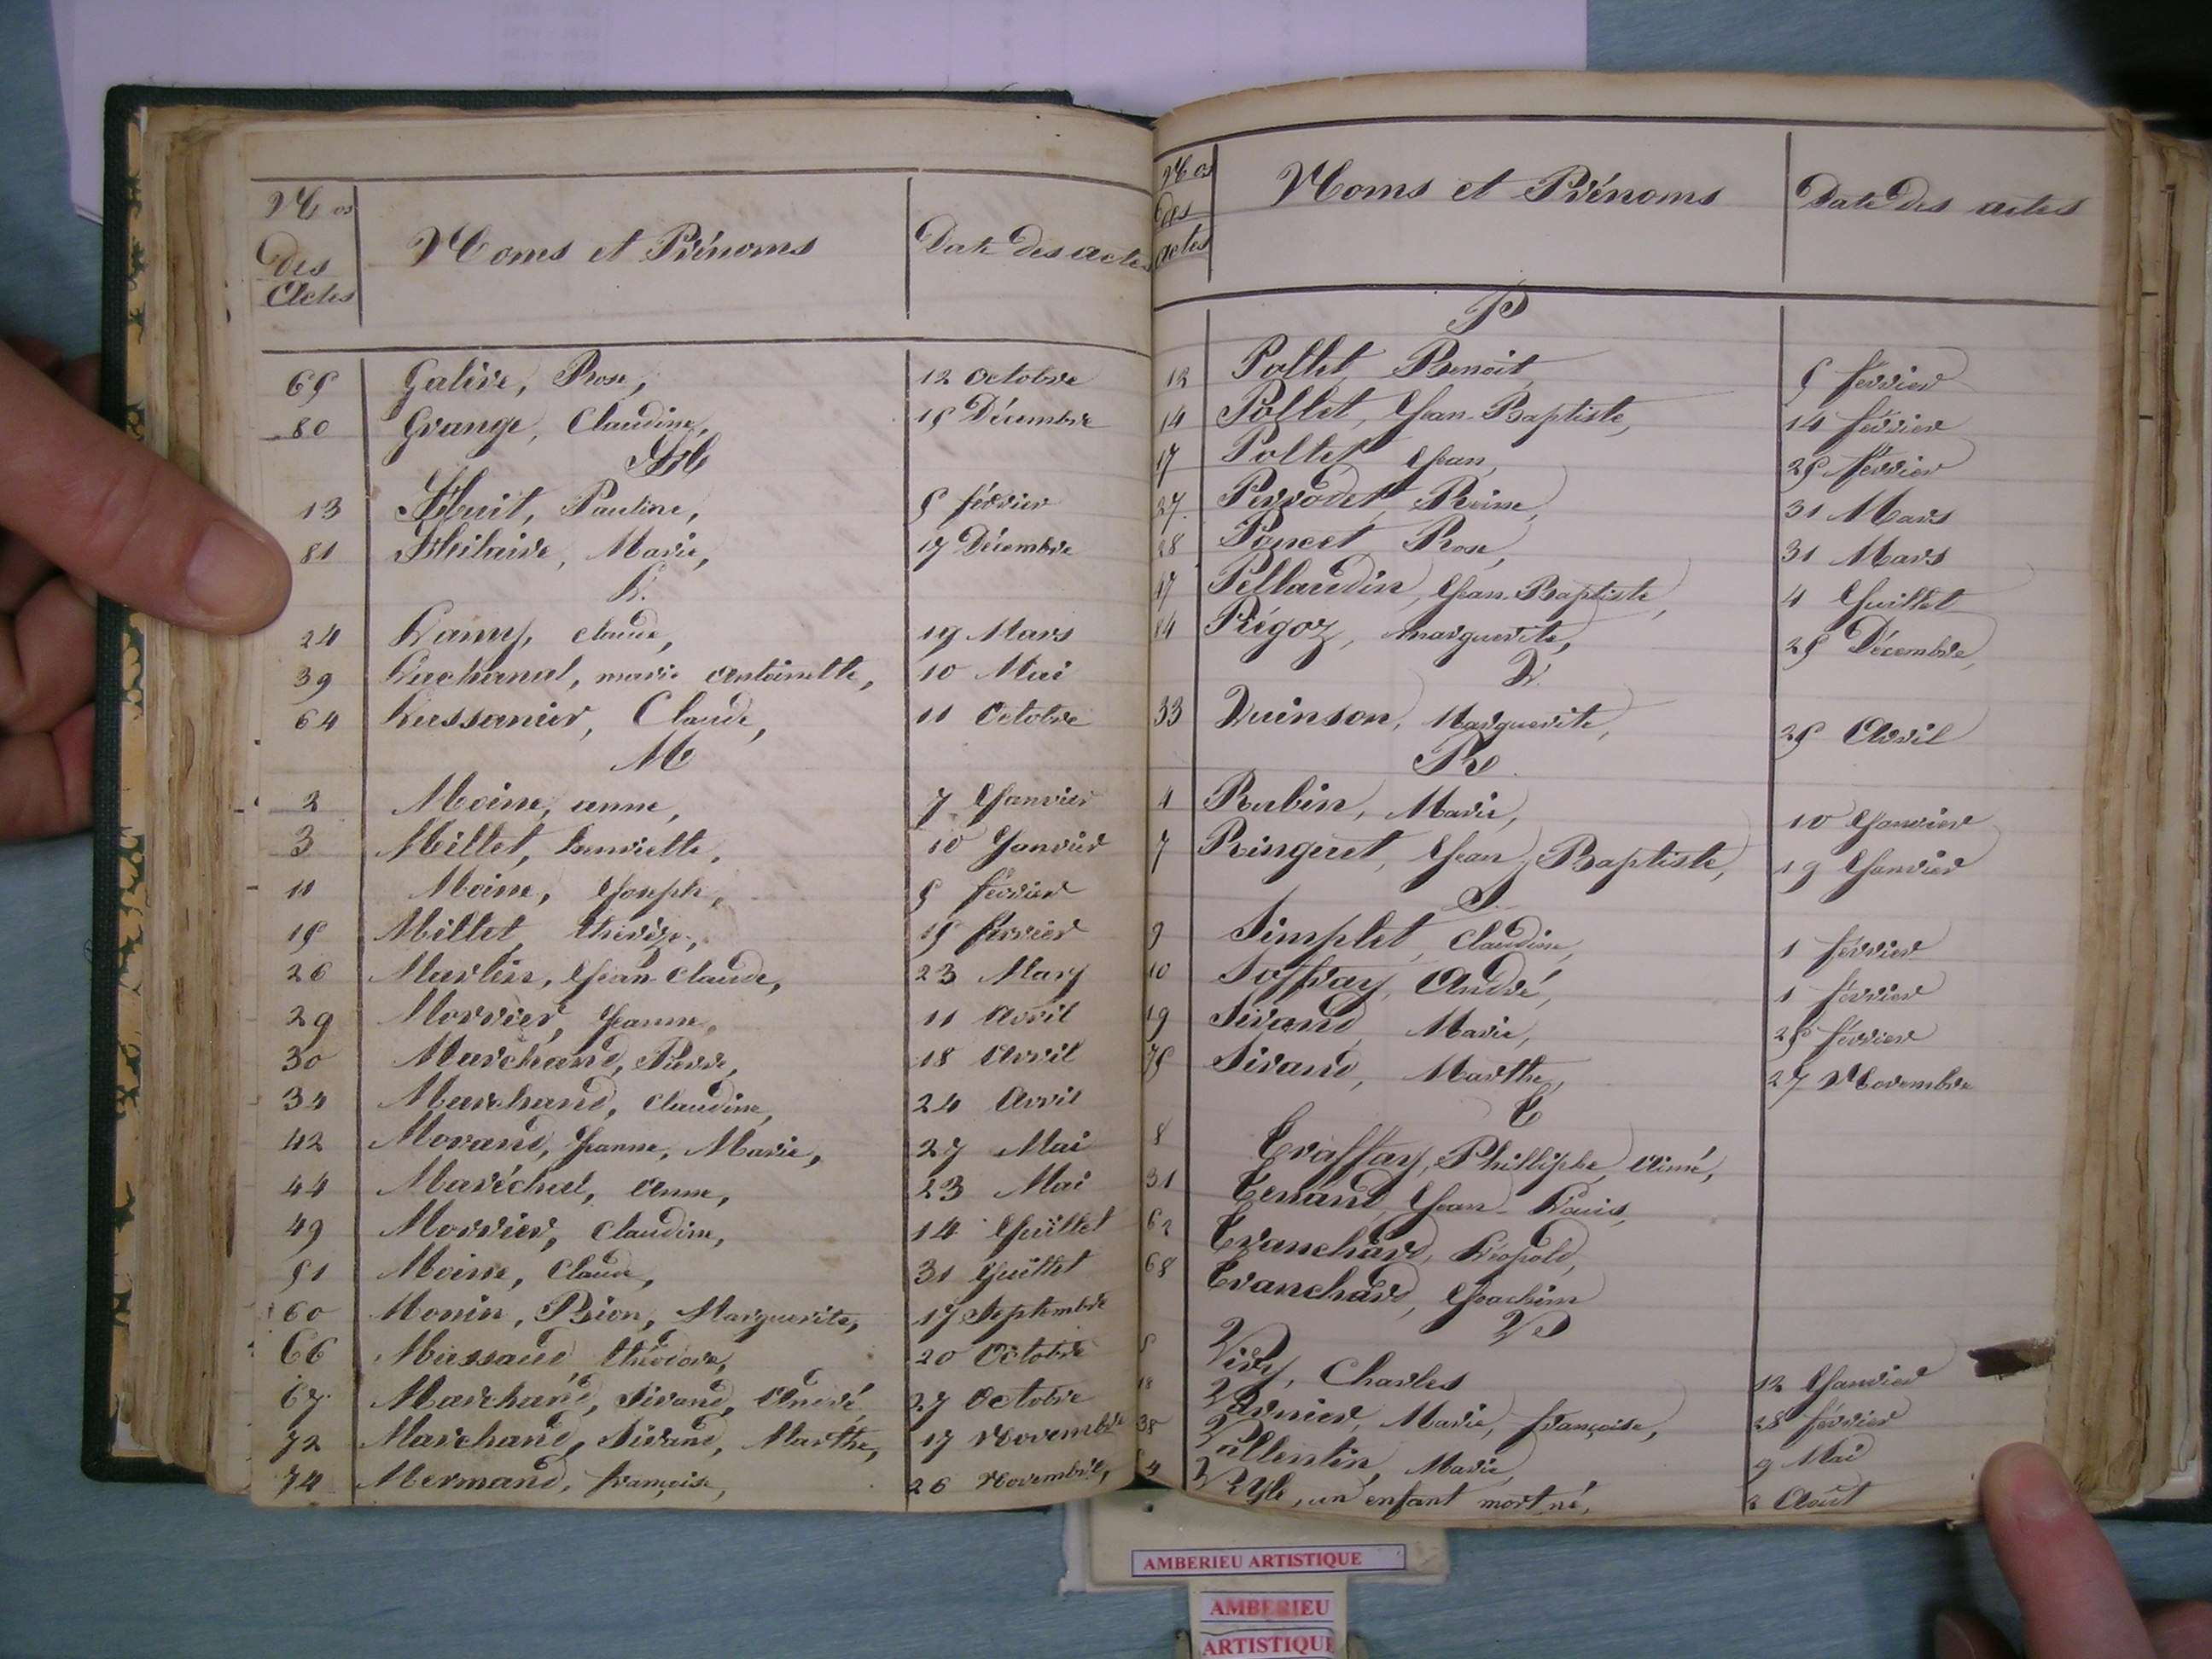 Nos
des
Actes
Noms et Prénoms
Date des actes
65 Galère, Rose, 12 Octobre
80 Grange, Claudine, 15 Décembre
H
13 Huit, Pauline, 5 février
81 Hilaire, Marie, 17 Décembre
L.
24 Lamy, Claude, 19 Mars
39 Luchanal, marie Antoinette, 10 Mai
64 Lussanier, Claude, 11 Octobre
M
2 Moine, anne, 7 Janvier
3 Millet, henriette, 10 Janvier
11 Moine, Joseph, 5 février
15 Millet, thérèze, 15 février
26 Martin, Jean Claude, 23 Mars
29 Morrier, Jeanne, 11 Avril
30 Marchand, Pierre, 18 Avril
34 Marchand, Claudine, 24 Avril
42 Morand, Jeanne, Marie, 27 Mai
44 Maréchal, Anne, 23 Mai
49 Morrier, Claudine, 14 Juillet
51 Moine, Claude, 31 Juillet
60 Monin, Bion, Marguerite, 17 Septembre
66 Mussaud théodore, 20 Octobre
67 Marchand, Sirand, André, 27 Octobre
72 Marchand, Sirand, Marthe, 17 Novembre
74 Mermand, françoise, 26 Novembre,
Nos
des
actes
Noms et Prénoms
Date des actes
P
12 Pollet, Benoit, 5 février
14 Pollet, Jean-Baptiste, 14 février
17 Pollet Jean, 25 février
27 Perrodet, Reine, 31 Mars
28 Poncet Rose, 31 Mars
47 Pellaudin, Jean-Baptiste, 4 Juillet
84 Piégoz, marguerite, 25 Décembre,
Q.
33 Quinson, Marguerite, 25 Avril
R
4 Rubin, Marie, 10 Janvier
7 Ringuet, Jean, Baptiste, 19 Janvier
S.
9 Simplet, Claudine, 1 février
10 Soffray, André, 1 février
19 Sirand, Marie, 25 février
75 Sirand, Marthe, 27 Novembre
T
8 Traffay, Philliphe, aimé,
31 Tenand, Jean-Louis,
62 Tranchard, Léopold,
68 Tranchard, Joachim
V
5 Viry, Charles 12 Janvier
18 Varnier, Marie, françoise, 28 février
38 Vallentin, Marie, 9 Mai
un enfant mort né, Août
AMBERIEU ARTISTIQUE
AMBERIEU
ARTISTIQUE